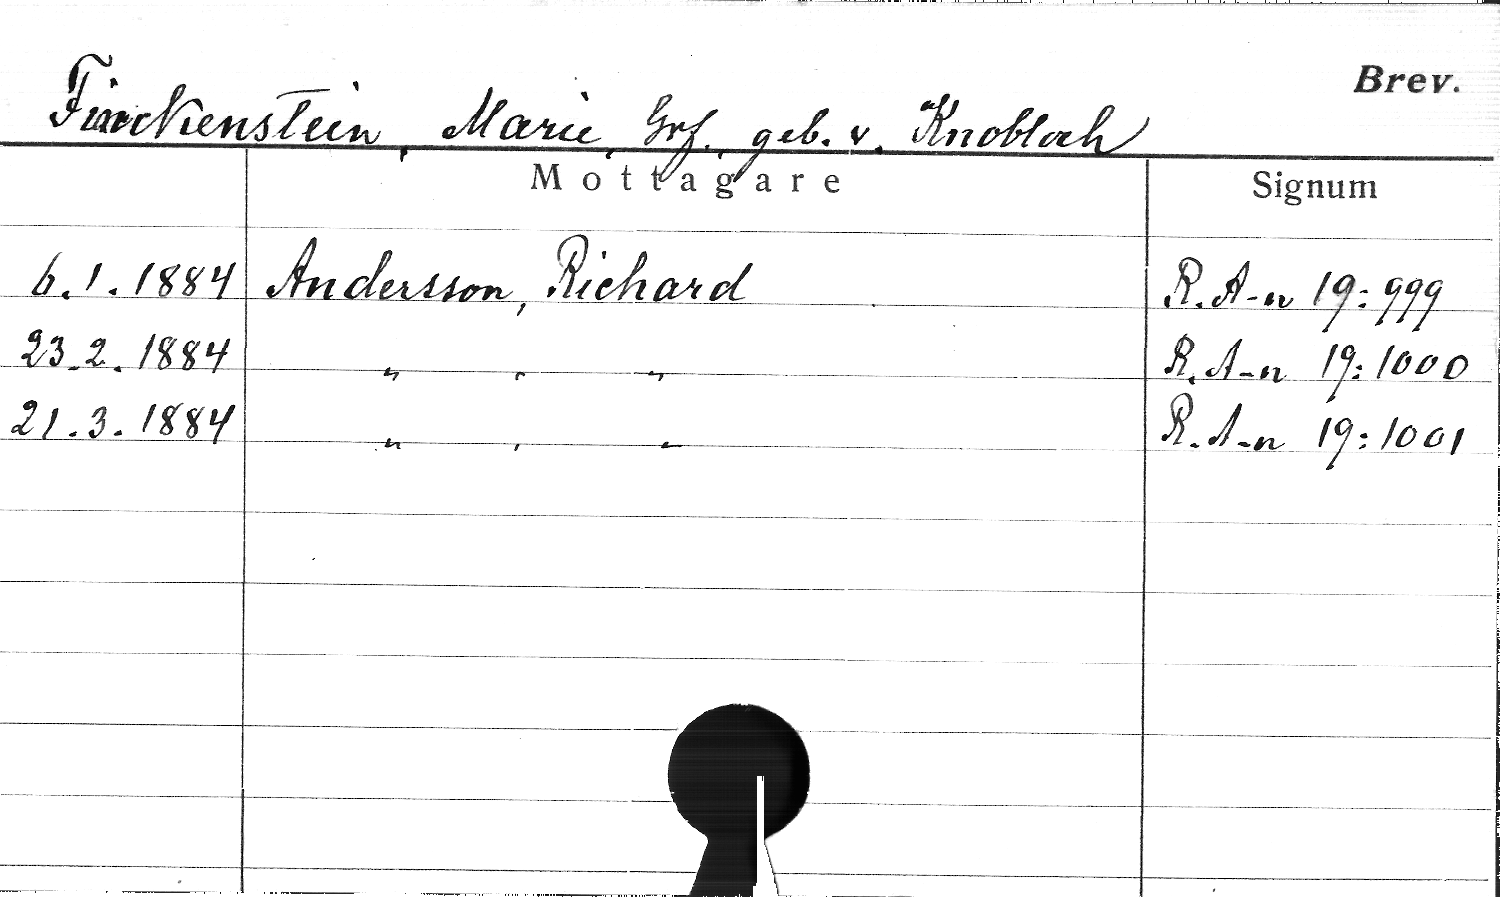 Brev.
Finckenstein, Marie, Grf., geb. v. Knobloch
Mottagare Signum
6.1.1884 Andersson, Richard R. A-n 19:999
23.2.1884 " , " R. A-n 19:1000
21.3.1884 " , " R. A-n 19:1001